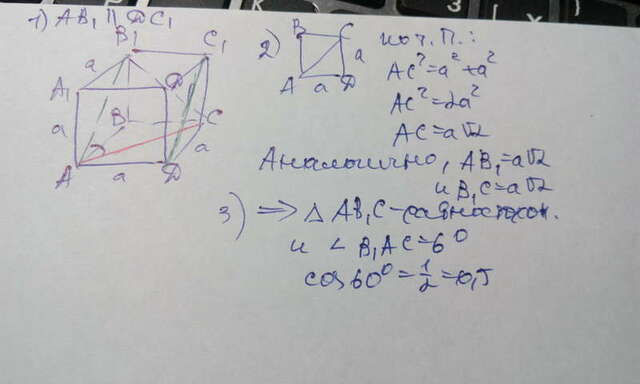 1) AB₁ || DC₁
B₁ C₁
a
A₁ D
a B C
a
A a D
2) B C
a
A a D
по т. П.:
AC² = a² + a²
AC² = 2a²
AC = a√2
Аналогично, AB₁ = a√2
и B₁C = a√2
3) => △ AB₁C – равностор.
и ∠ B₁AC = 6°
cos 60° = 1/2 = 0,5